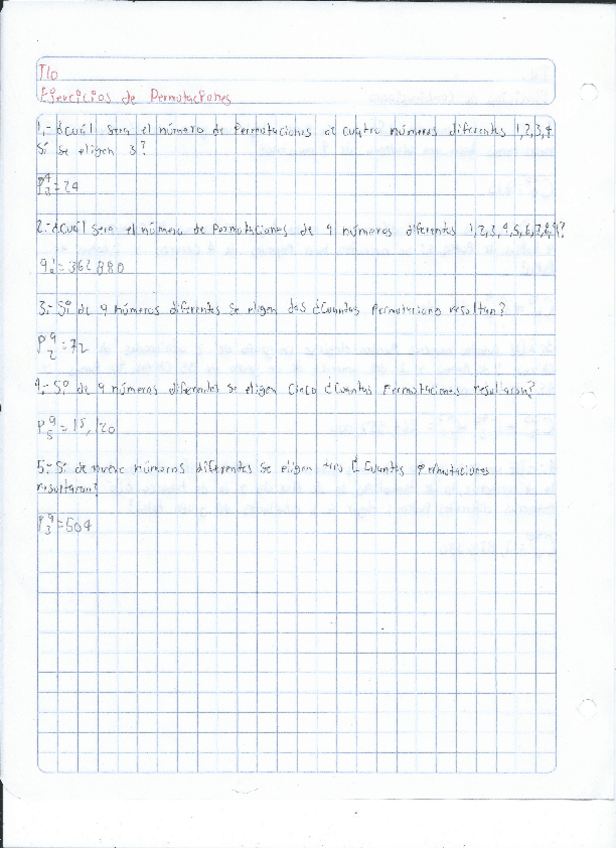 T10
Ejercicios de Permutaciones
1.- ¿Cuál sera el número de Permutaciones de cuatro números diferentes 1,2,3,4
Si se eligen 3?
P⁴₃=24
2.- ¿Cuál sera el número de Permutaciones de 9 números diferentes 1,2,3,4,5,6,7,8,9?
9!=362 880
3.- Si de 9 números diferentes se eligen dos ¿Cuantas resultan?
P⁹₂=72
4.- Si de 9 números diferentes se eligen cinco ¿Cuantas Permutaciones
P⁹₅=15,120
5.- Si de nueve números diferentes se eligen tres ¿Cuantas Permutaciones
resultaran?
P⁹₃=504